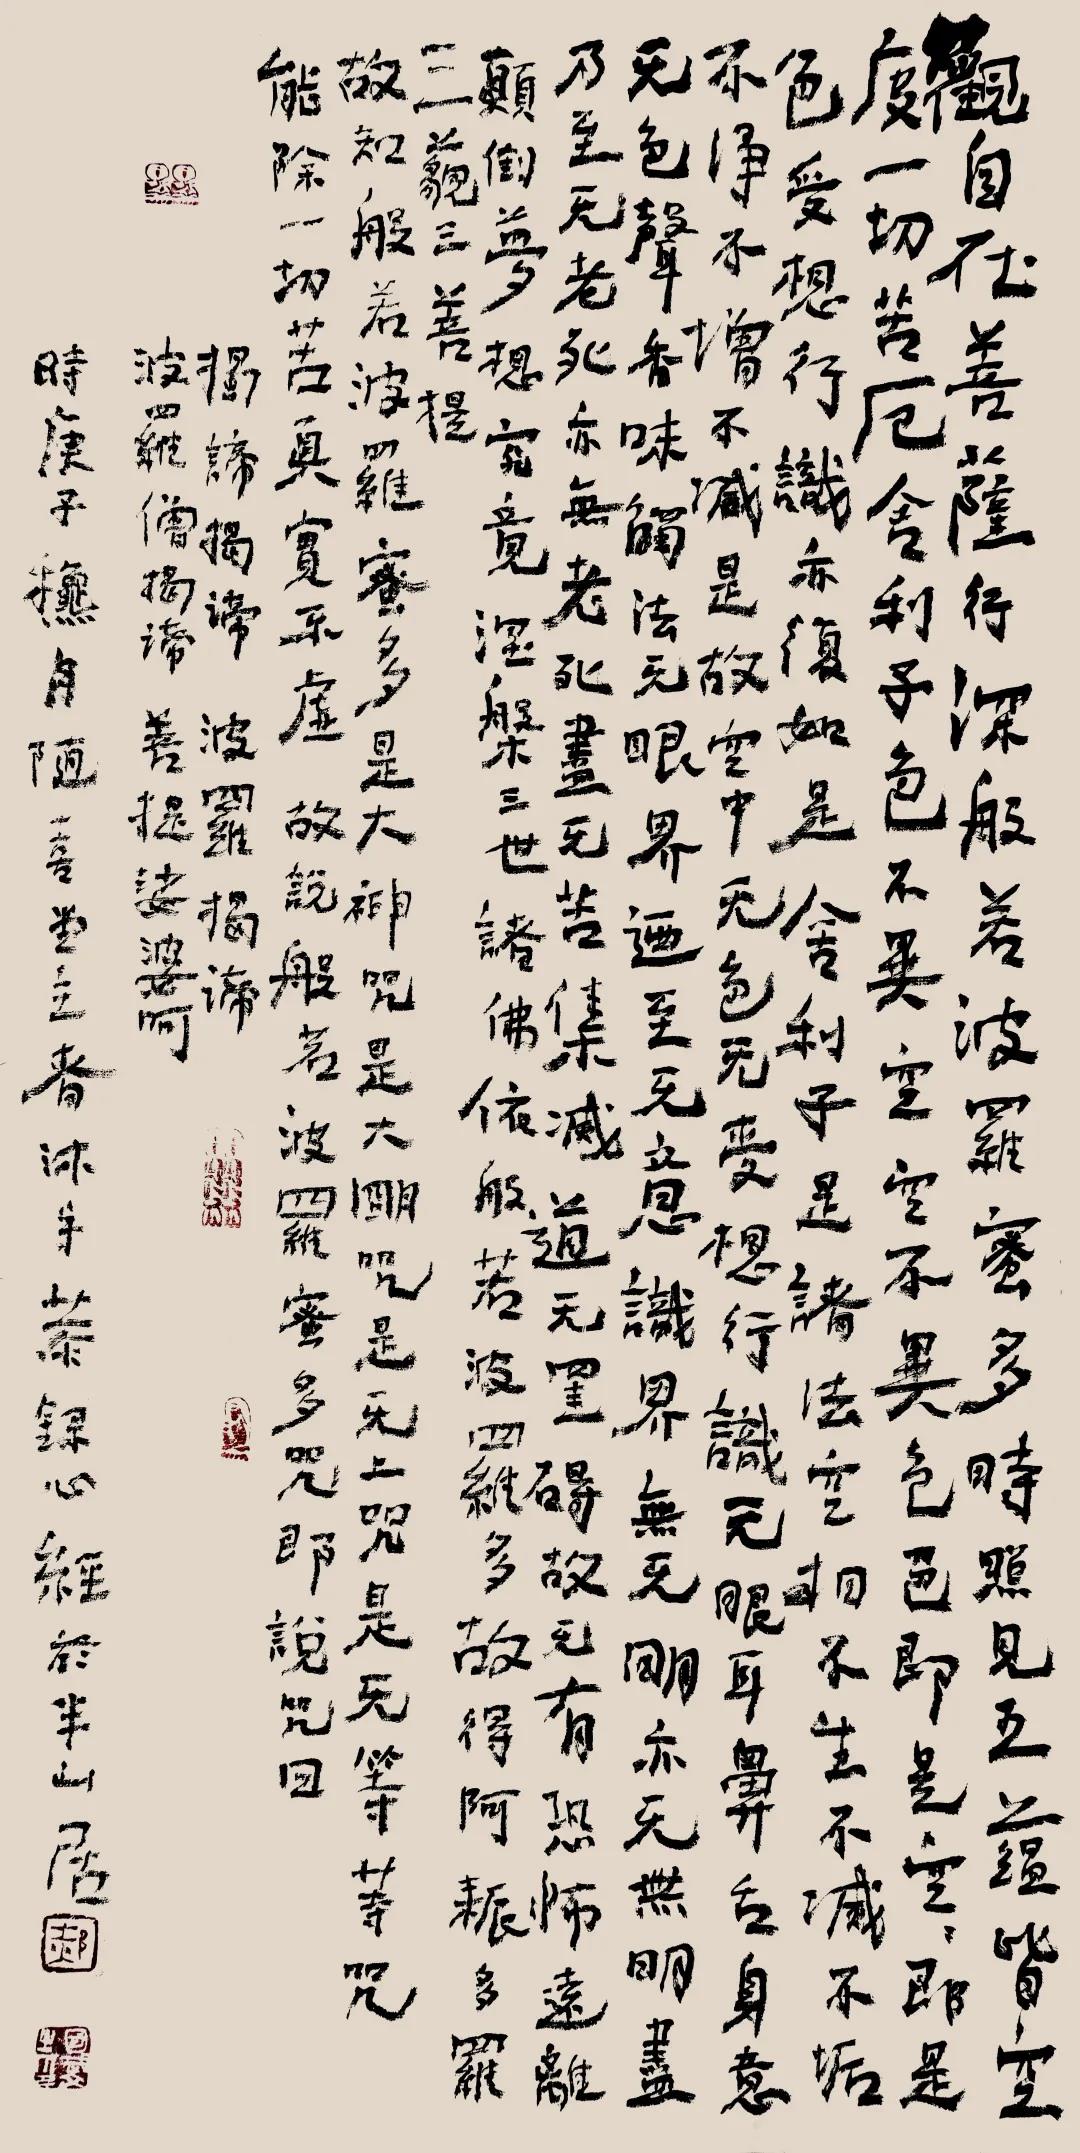 觀自在菩薩行深般若波羅蜜多時照見五蘊皆空
度一切苦厄舍利子色不異空空不異色色即是空、即是
色受想行識亦復如是舍利子是諸法空相不生不滅不垢
不淨不增不減是故空中无色无受想行識无眼耳鼻舌身意
无色聲香味觸法无眼界迺至无意識界無无明亦无無明盡
乃至无老死亦無老死盡无苦集滅道无罣碍故无有恐怖遠離
顛倒夢想究竟涅槃三世諸佛依般若波羅多故得阿耨多羅
三藐三菩提
故知般若波羅蜜多是大神咒是大明咒是无上咒是无等等咒
能除一切苦真實不虛故說般若波羅蜜多咒即說咒曰
揭諦揭諦 波羅揭諦
波羅僧揭諦 菩提娑婆呵
時庚子穐月陋喜堂主者沐手恭錄心經於半山居